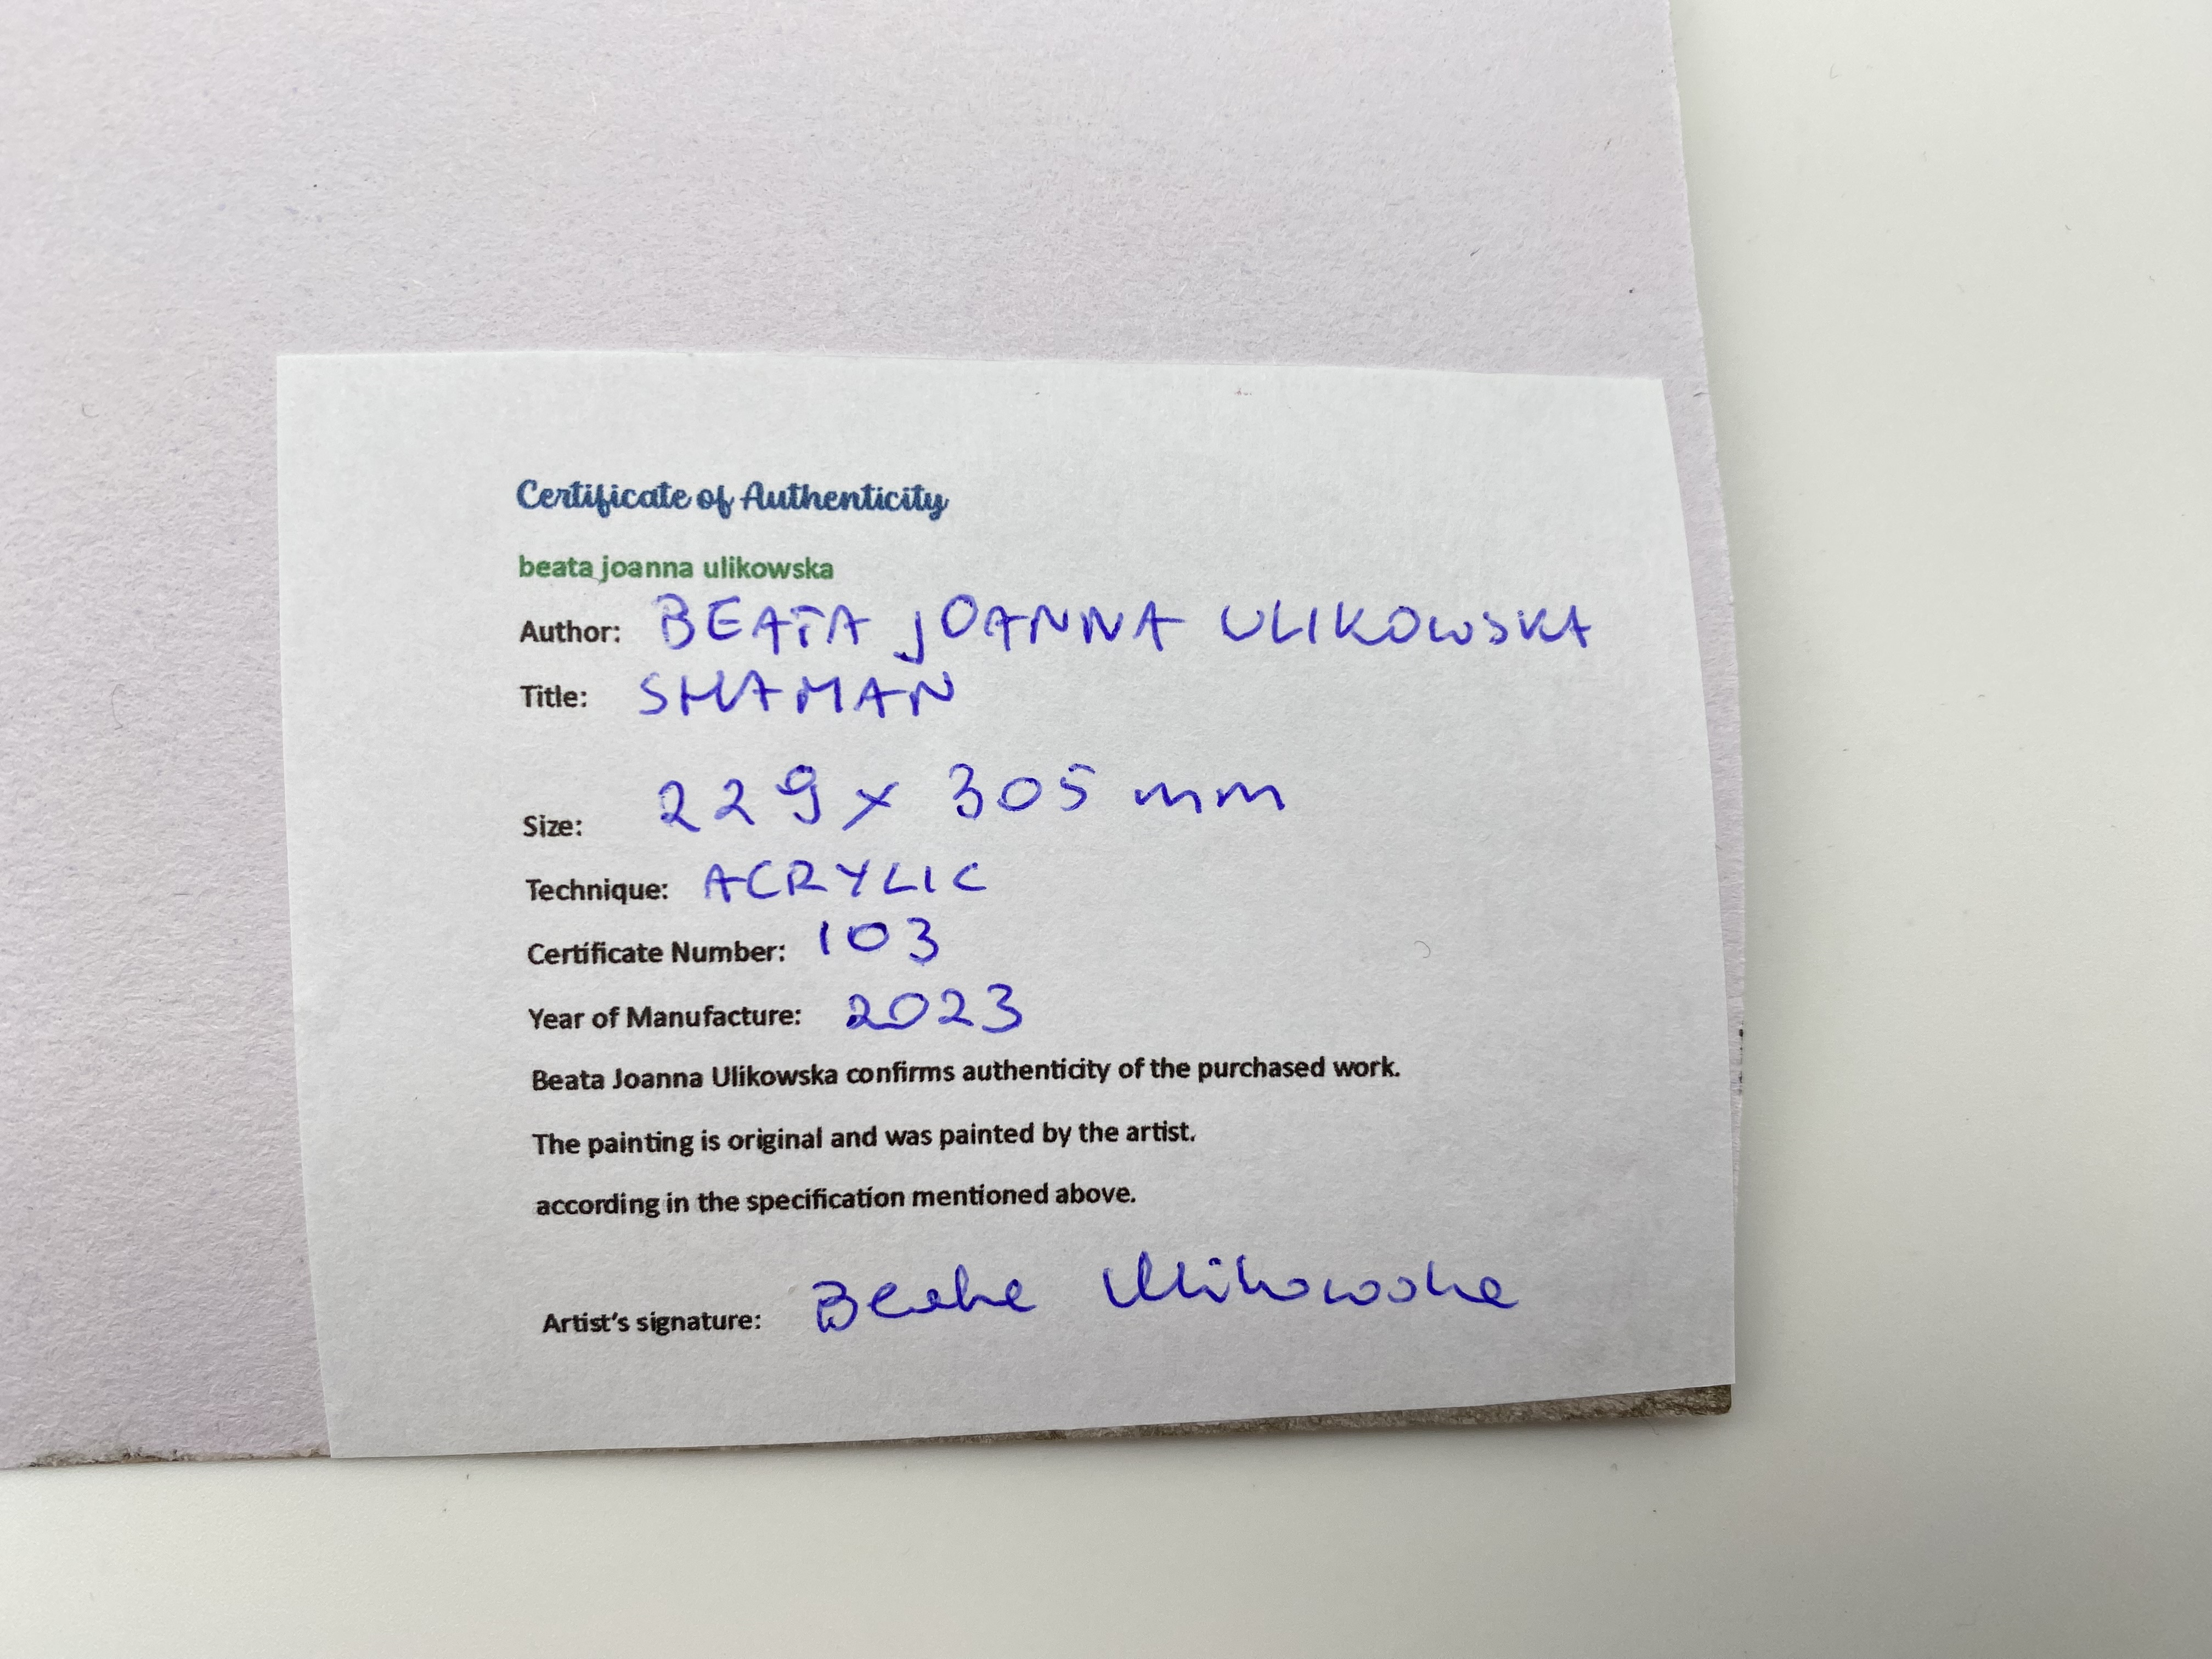 Certificate of Authenticity
beata joanna ulikowska
Author: BEATA JOANNA ULIKOWSKA
Title: SHAMAN
Size: 229 x 305 mm
Technique: ACRYLIC
Certificate Number: 103
Year of Manufacture: 2023
Beata Joanna Ulikowska confirms authenticity of the purchased work.
The painting is original and was painted by the artist.
according in the specification mentioned above.
Artist's signature: Beata Ulikowska